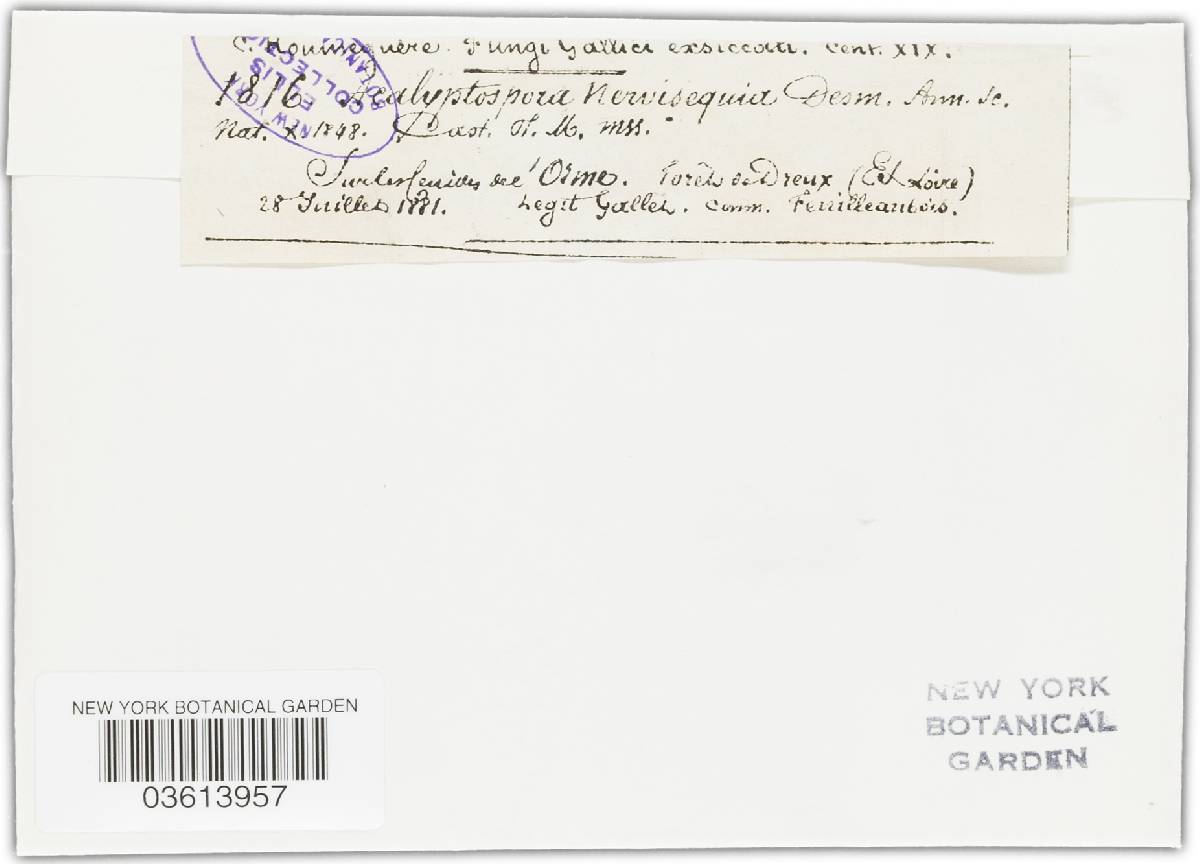 C. Roumeguère. Fungi Gallici exsiccati. Cent. XIX.
1816. Acalyptospora Nervisequia Desm. Ann. Sc.
Nat. X. 1848. Cast. H. M. mss.
Sur les feuilles de l'Orme. Forêt de Dreux (Et Loire)
28 Juillet 1881. Legit Gallet. Comm. Feuilleaubois.
NEW YORK
BOTANICAL
ELLIS
COLLECTION
NEW YORK BOTANICAL GARDEN
03613957
NEW YORK
BOTANICAL
GARDEN